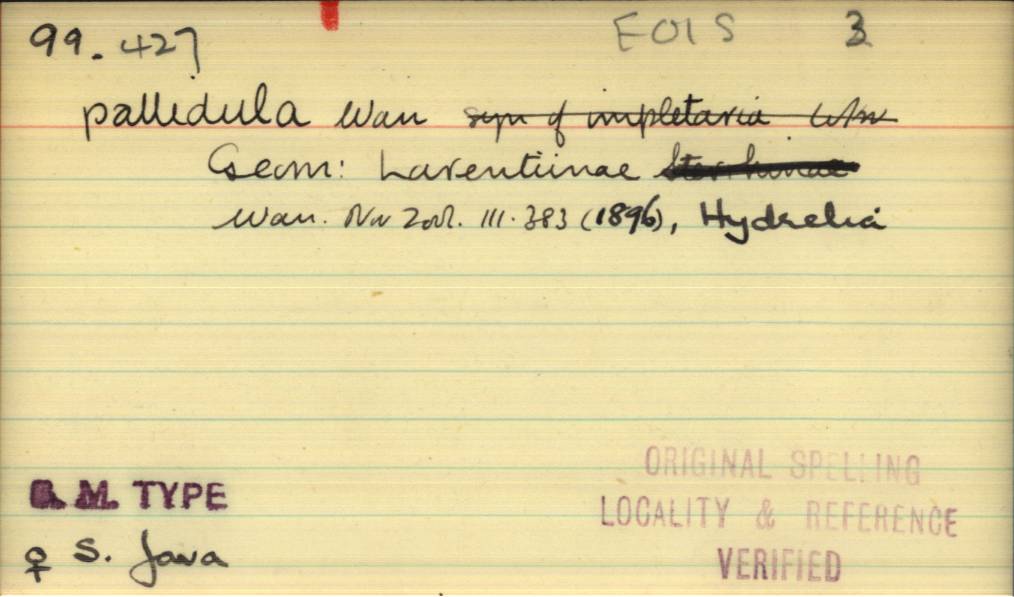 99.427 EOIS 3
pallidula Warr syn of impletaria Wlk
Geom: Larentiinae Sterrhinae
Warr. Nov Zool. III.383 (1896), Hydrelia
B.M. TYPE
♀ S. Java
ORIGINAL SPELLING
LOCALITY & REFERENCE
VERIFIED